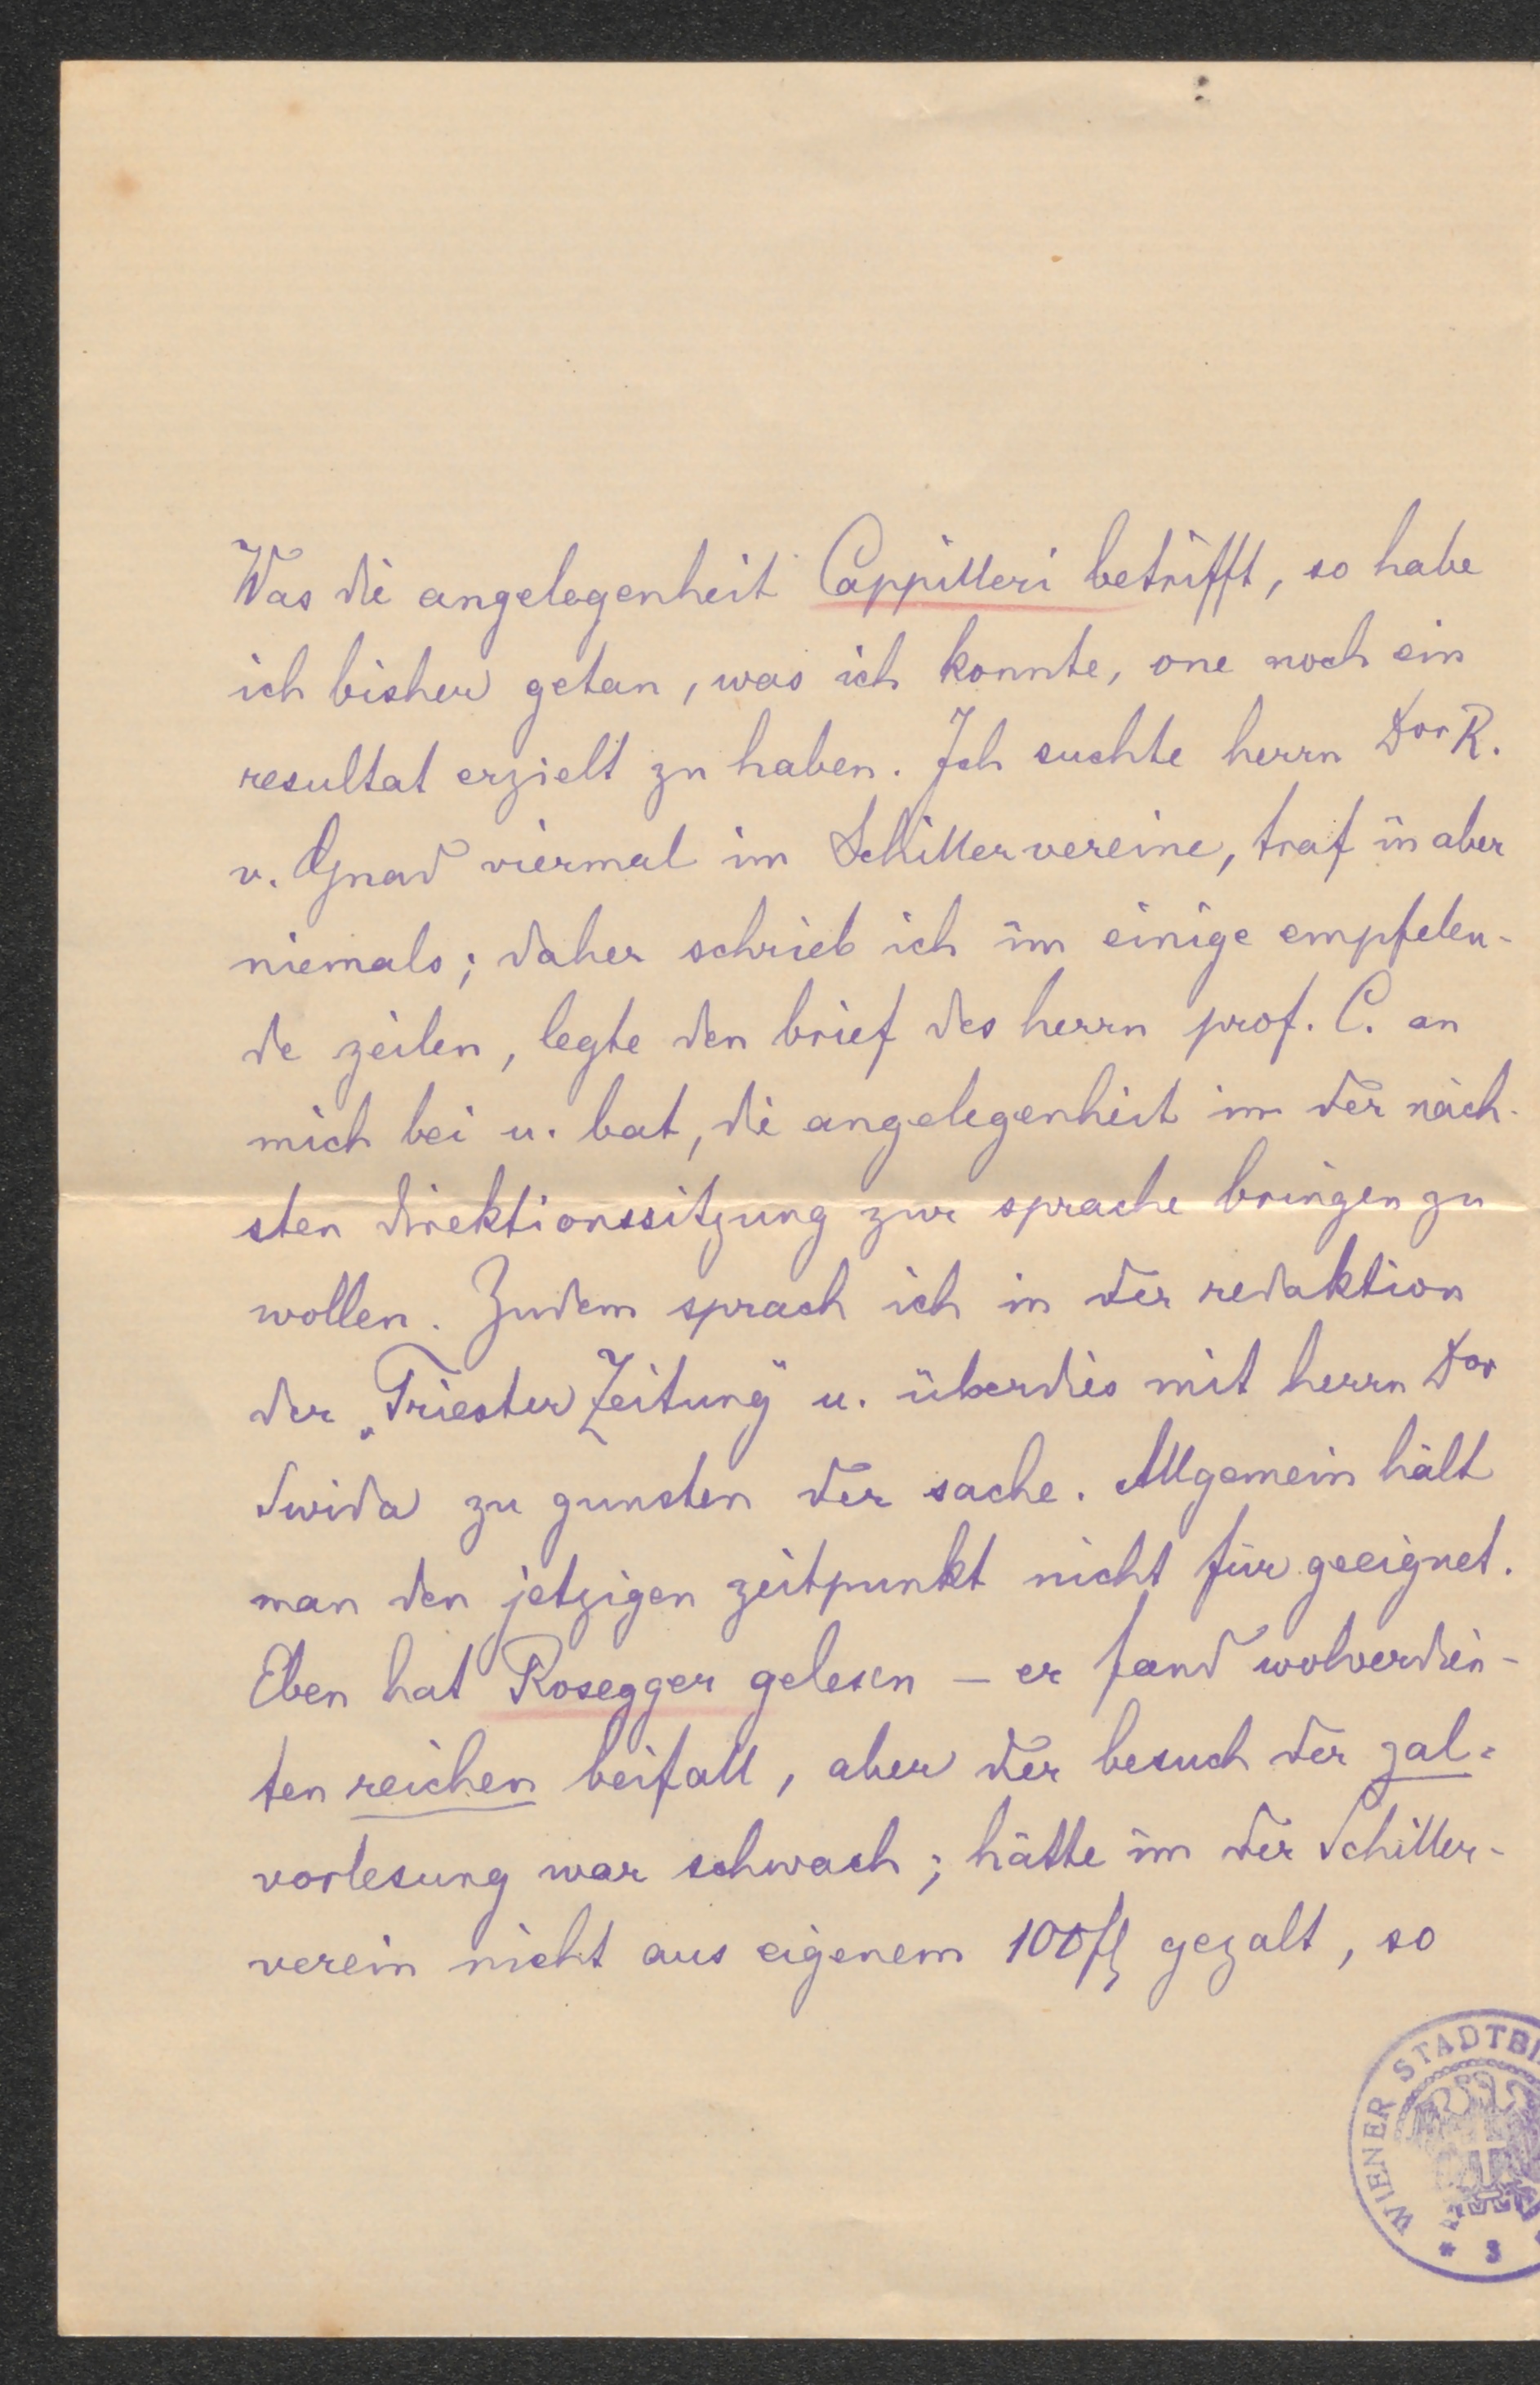 Was die angelegenheit Cappilleri betrifft, so habe
ich bisher getan, was ich konnte, one noch ein
resultat erzielt zu haben. Ich suchte herrn Dor R.
v. Gnad viermal im Schillervereine, traf in aber
niemals; daher schrieb ich im einige empfelen-
de zeilen, legte den brief des herrn prof. C. an
mich bei u. bat, die angelegenheit in der näch-
sten direktionssitzung zur sprache bringen zu
wollen. Zudem sprach ich in der redaktion
der „Triester Zeitung" u. überdies mit herrn Dor
Swida zu gunsten der sache. Allgemein hält
man den jetzigen zeitpunkt nicht für geeignet.
Eben hat Rosegger gelesen – er fand wolverdien-
ten reichen beifall, aber der besuch der zal-
vorlesung war schwach; hätte im der Schiller-
verein nicht aus eigenem 100 fl gezalt, so
WIENER STADTBI
* 3